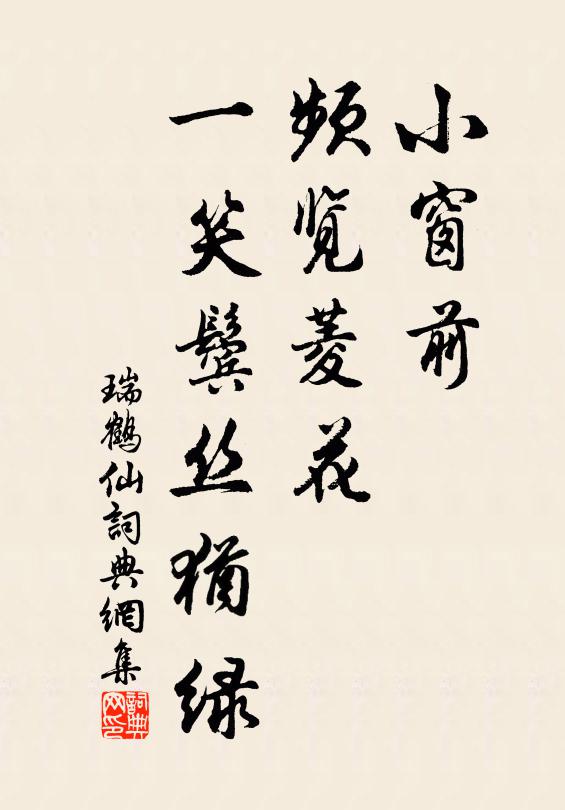 小窗前
频览菱花
一笑鬓丝犹绿
瑞鹤仙詞典網集
詞典网印